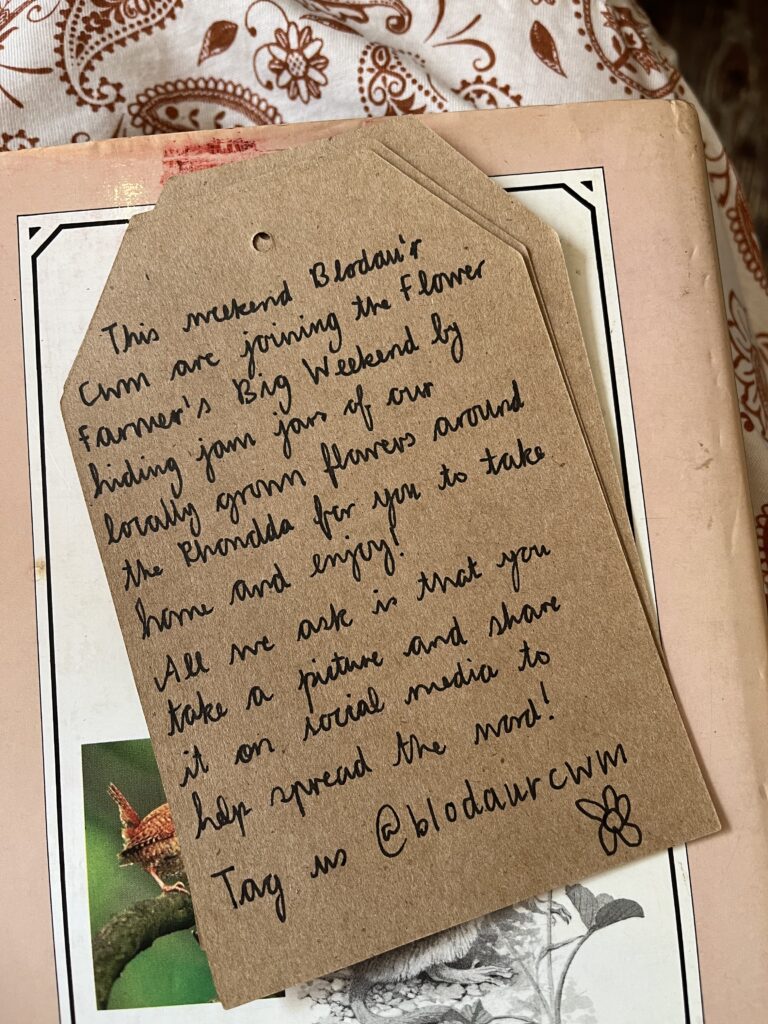 This weekend Blodau'r
Cwm are joining the Flower
Farmer's Big Weekend by
hiding jam jars of our
locally grown flowers around
the Rhondda for you to take
home and enjoy!
All we ask is that you
take a picture and share
it on social media to
help spread the word!
Tag us @blodaurcwm